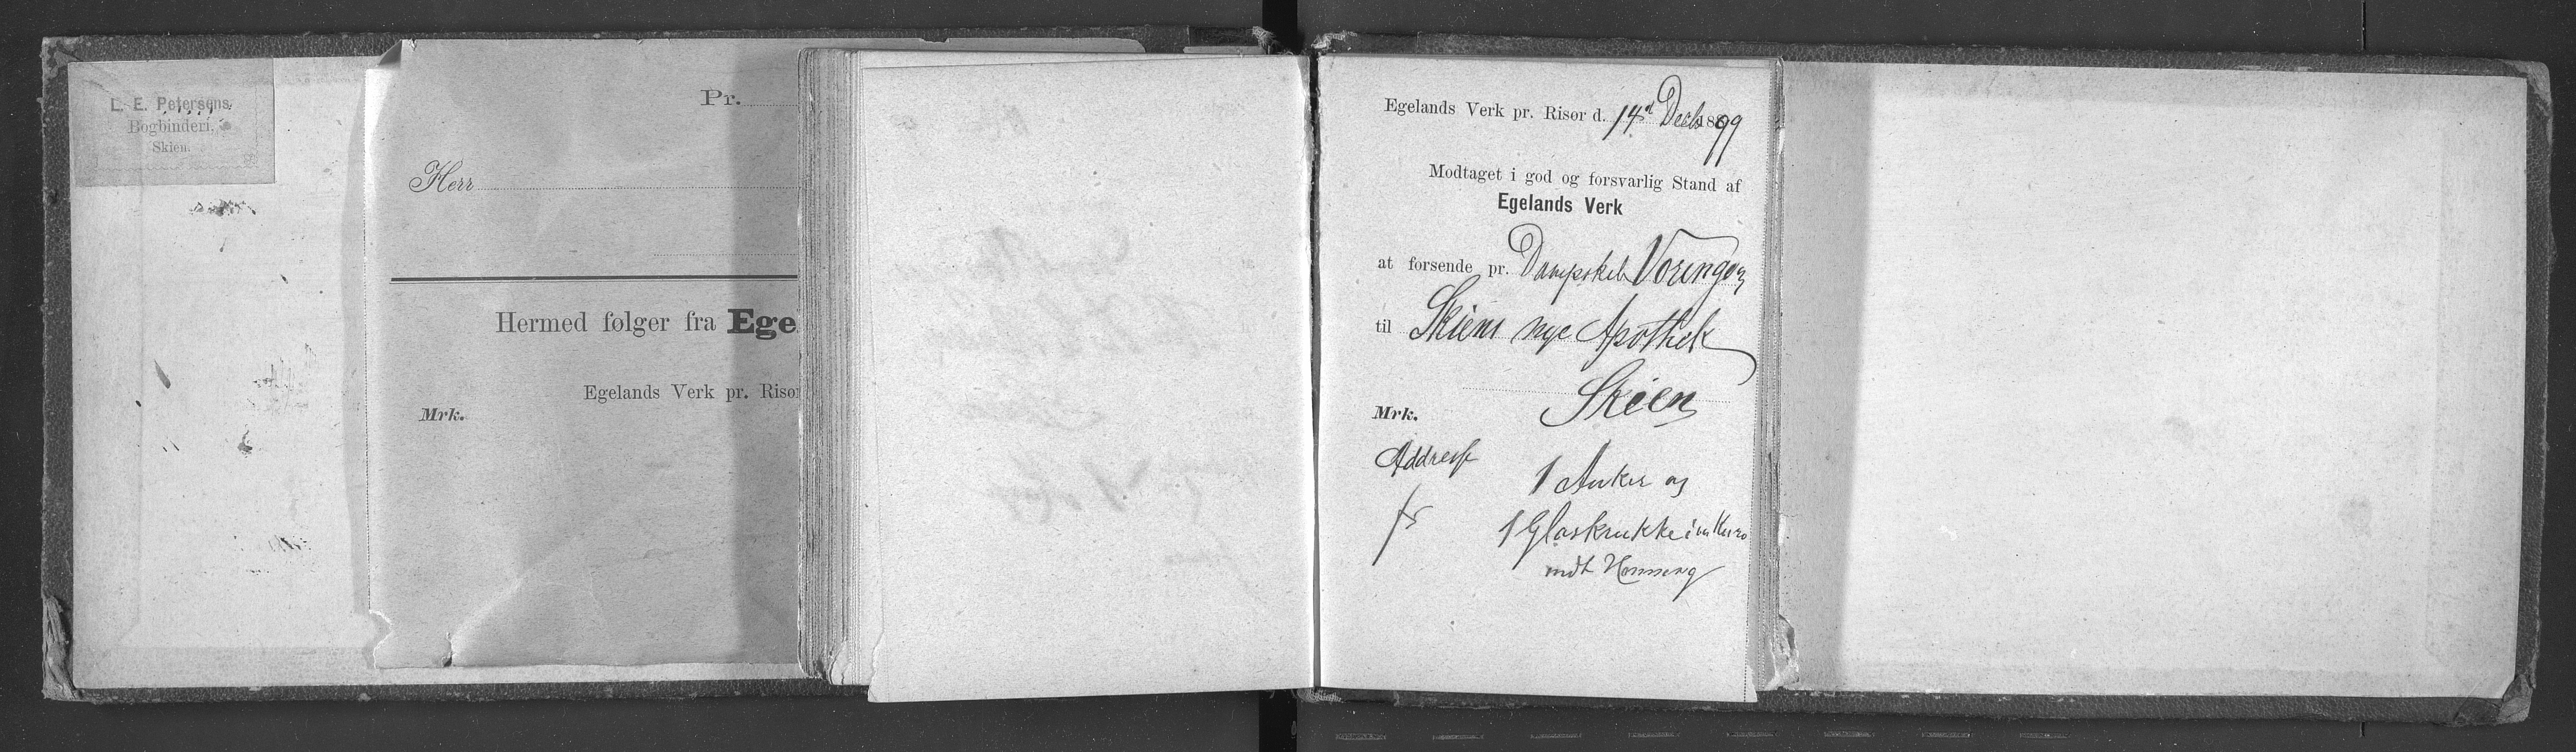 L. E. Petersens
Bogbinderi,
Skien.
Pr.
Herr
Hermed følger fra Ege
Egelands Verk pr. Risør
Mrk.
Egelands Verk pr. Risør d. 14d Decb 1899
Modtaget i god og forsvarlig Stand af
Egelands Verk
at forsende pr. Dampskib Vøringen
til Skiens nye Apothek
Skien
Mrk.
Addresse
1 Anker og
1 Glaskrukke i en
mdt Honning